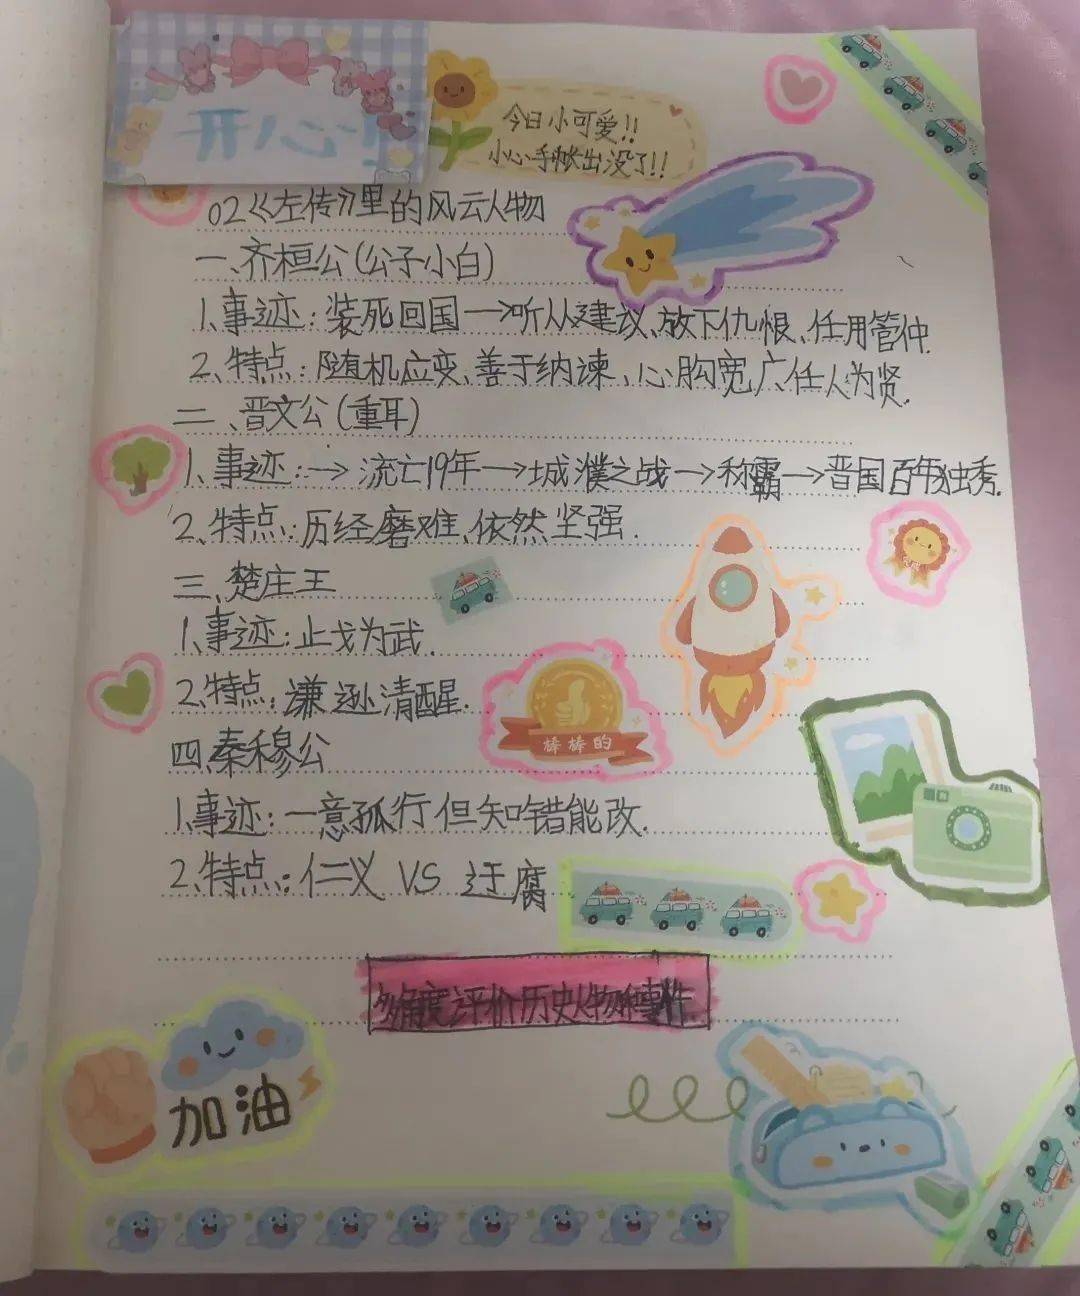 今日小可爱!!
小心手帐出没了!!
02《左传》里的风云人物
一、齐桓公(公子小白)
1、事迹:装死回国→听从建议、放下仇恨、任用管仲.
2、特点:随机应变、善于纳谏、心胸宽广、任人为贤.
二、晋文公(重耳)
1、事迹:→流亡19年→城濮之战→称霸→晋国百年独秀.
2、特点:历经磨难、依然坚强.
三、楚庄王
1、事迹:止戈为武.
2、特点:谦逊清醒.
棒棒的
四、秦穆公
1、事迹:一意孤行但知错能改.
2、特点:仁义 VS 迂腐
多角度评价历史人物和事件
加油